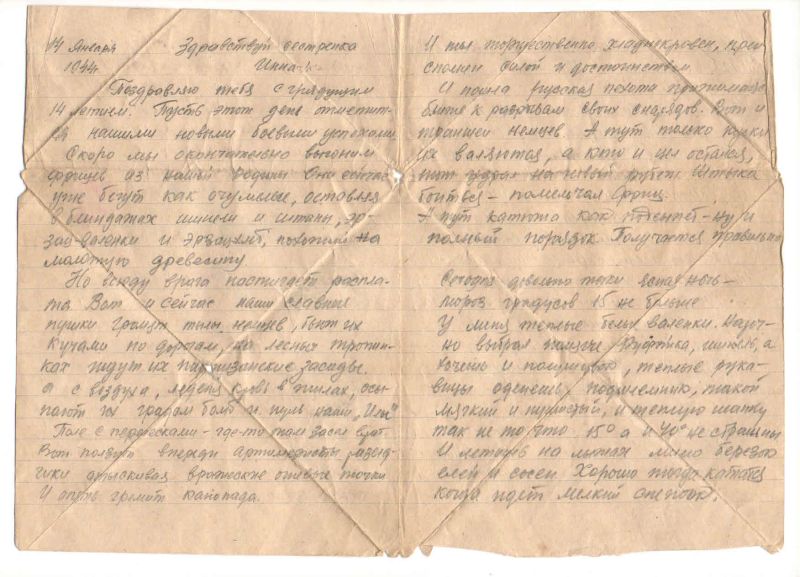 14 Января Здравствуй сестренка
1944 Инна!
Поздравляю тебя с грядущим
14 летием. Пусть этот день отметит-
ся нашими новыми боевыми успехами
Скоро мы окончательно выгоним
фрицев из нашей Родины Они сейчас
уже бегут как очумелые, оставляя
в блиндажах шинели и штаны, эр-
зац-валенки и эрзацхлеб, похожий на
молотую древесину
Но всюду врага настигает распла-
та Вот и сейчас наши славные
пушки громят тылы немцев, бьют их
кучами по дорогам, на лесных тропин-
ках ждут их партизанские засады.
А с воздуха, леденя кровь в жилах, осы-
пают их градом бомб и пуль наши „Илы"
Поле с перелесками - где-то там засел враг.
Вот ползут впереди артиллеристы развед-
чики отыскивая вражеские огневые точки
И опять гремит канонада.
И ты торжественно хладнокровен, преи
сполнен силой и достоинством.
И пошла русская пехота прижимаясь
ближе к разрывам своих снарядов. Вот и
траншеи немцев. А тут только кучки
их валяются, а кто и цел остался,
тот удрал на новый рубеж Штыка
боится - помельчал фриц.
А тут катюша как - ну и
полный порядок. Получается правильно
Сегодня довольно ночь -
мороз градусов 15 не больше
У меня теплые белые валенки. Нароч-
но выбрал полегче шинель, а
хочешь и полушубок, теплые рука-
вицы оденешь подшлемник, такой
мягкий и пушистый, и теплую шапку
так не то что 15° а и 40° не страшны
И летишь на лыжах мимо березок
елей и сосен Хорошо тогда кататься
когда идет мелкий снежок.